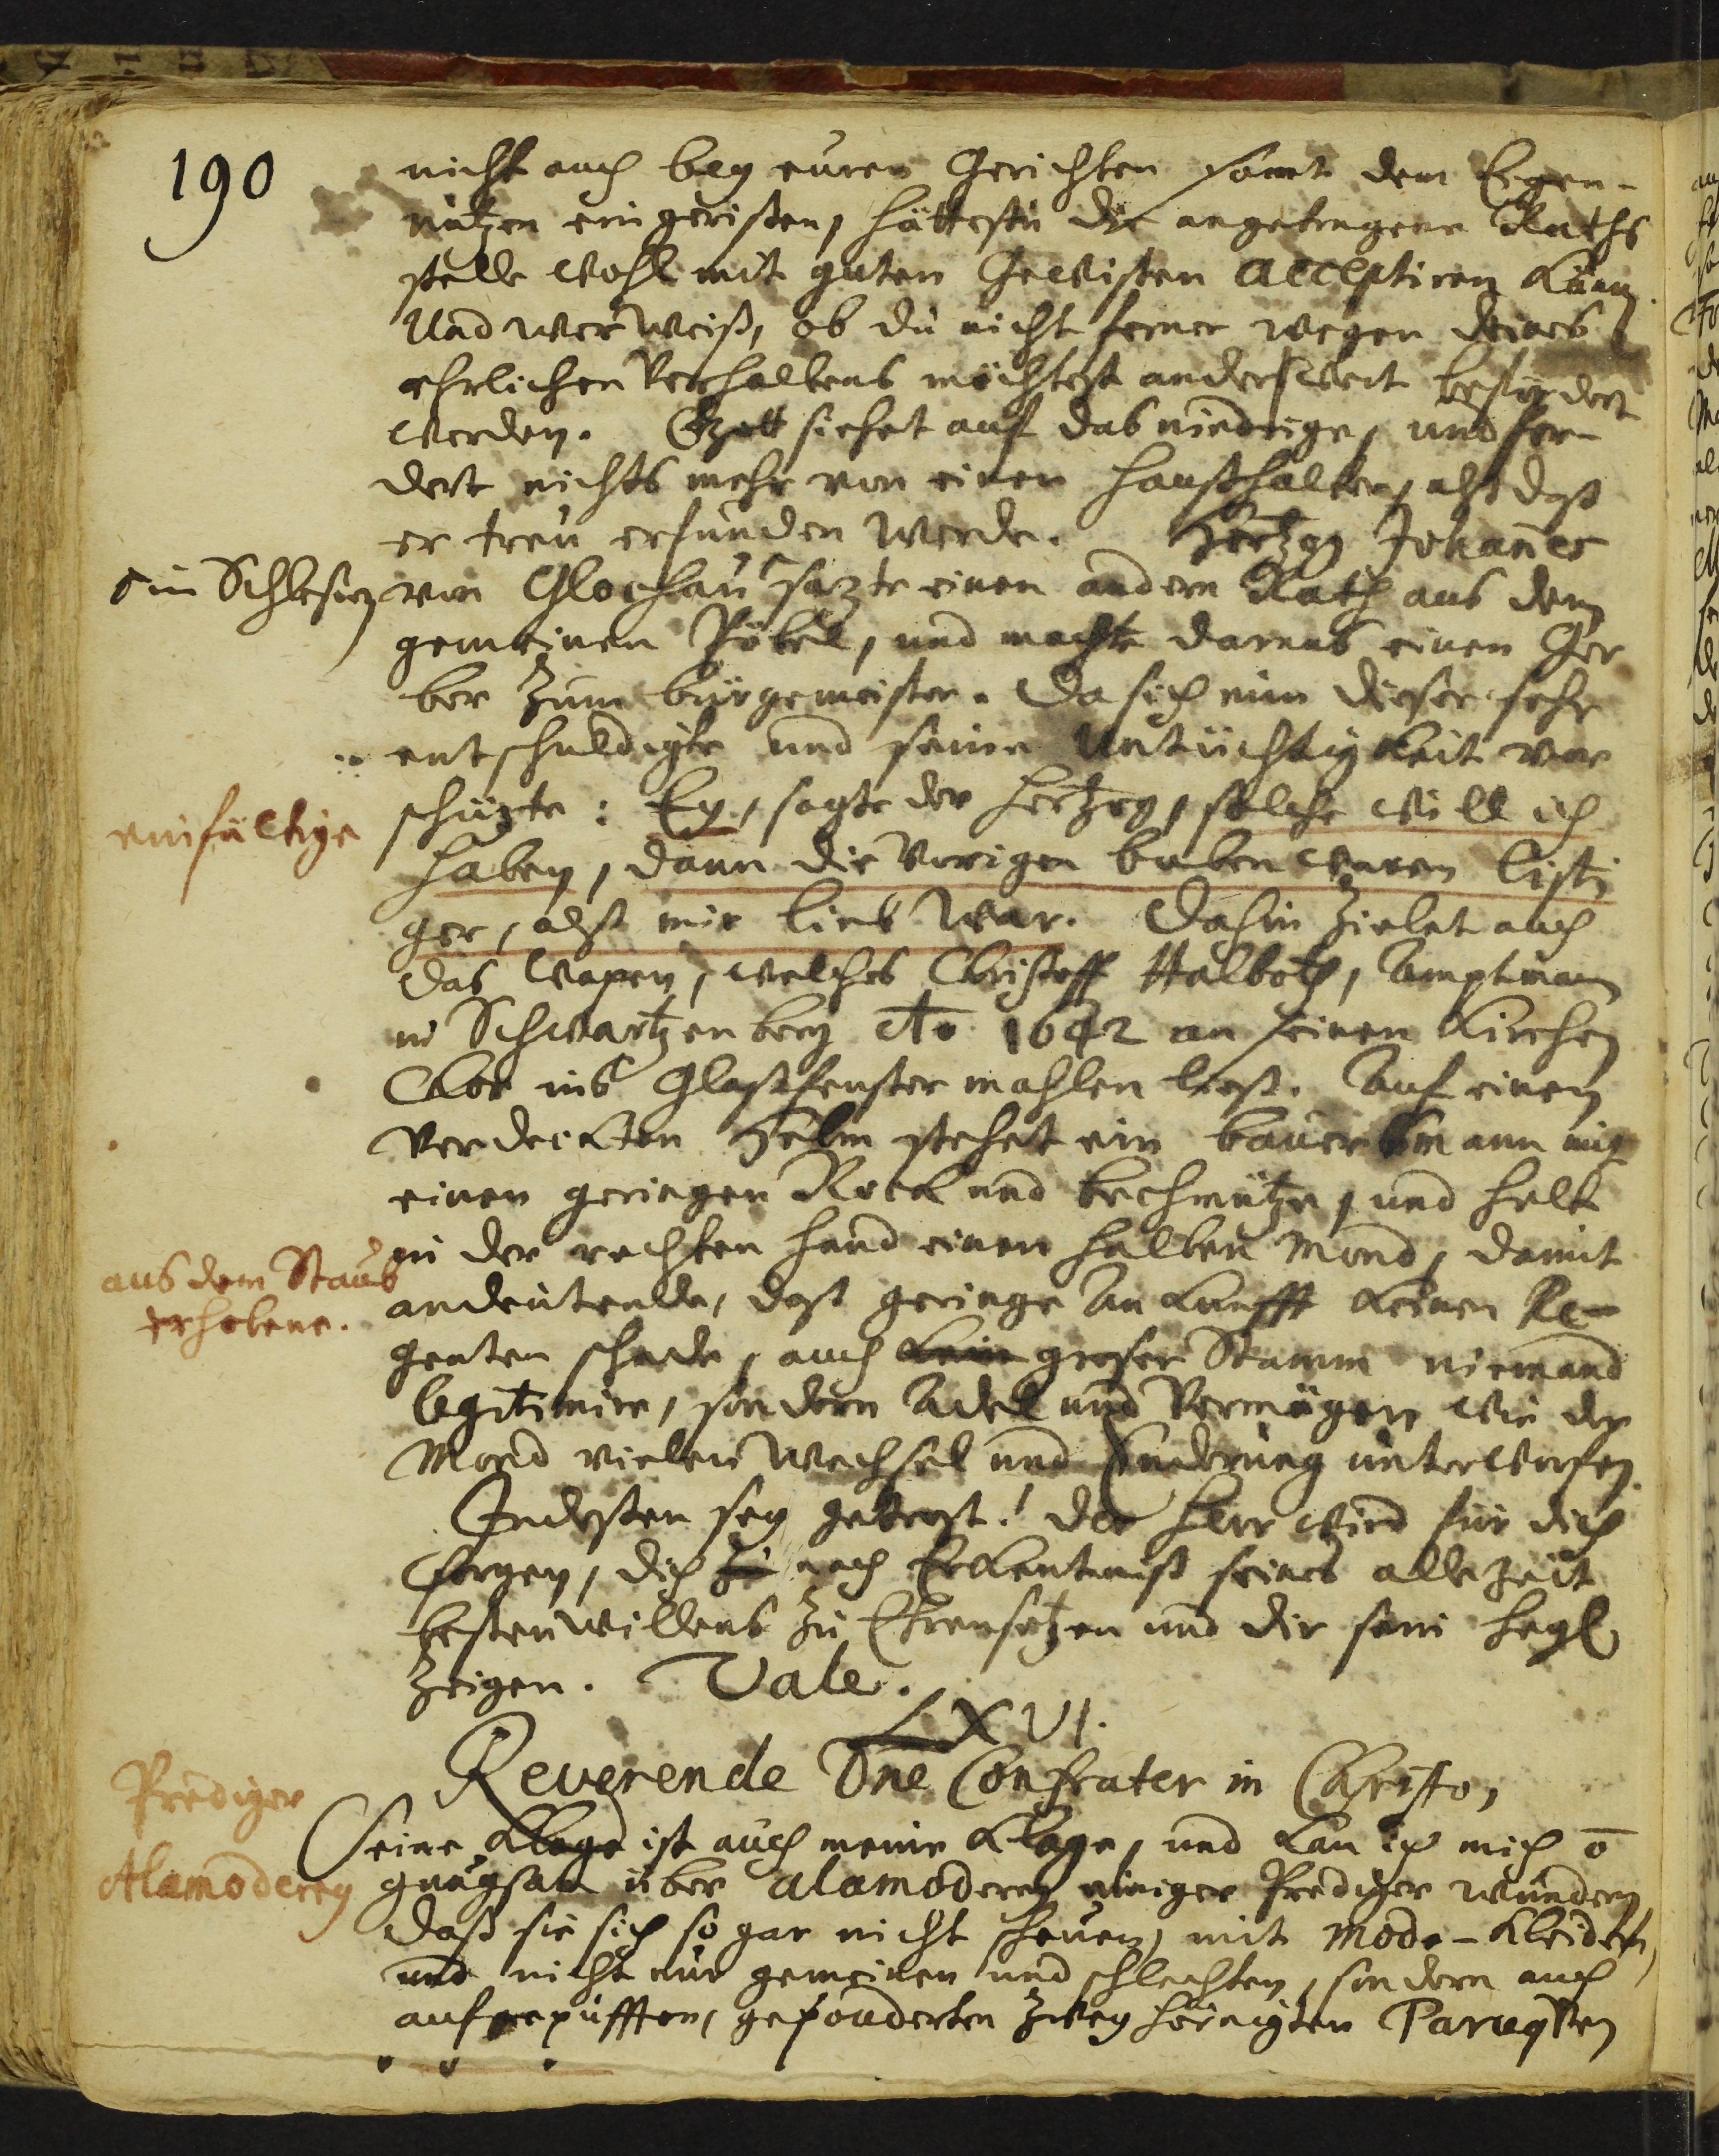 190
nicht auch bey euren Gerichten samt dem Eigen-
nützen eingerißen, hättestu die angetragene Raths
stelle wohl mit guten Gewißen acceptiren könn.
Und wer weiß, ob du nicht ferner wegen deines
ehrlichen Verhaltens möchtest anderswert befördert
werden. Gott siehet auf das niedrige, und for-
dert nichts mehr von einen Haußhalter, alß daß
er treu erfunden werde. Hertzog Johannes
in Schlesien
von Glochau sazte einen andern Rath aus dem
gemeinen Pöbel, und machte daraus einen Ger
ber zum bürgemeister. Da sich nun dieser sehr
entschuldigte und seine Untüchtigkeit vor
einfältige
schüzte: Ey, sagte der Hertzog, solche will ich
haben, dann die vorigen buben waren listi
ger, alß mir lieb war. Dahin zielet auch
das Wapen, welches Christoff Halboth, Amptmann
in Schwartzenberg Ao 1642 an seinen Kirchen
Chor ins Glaßfenster mahlen ließ. Auf einen
verdeckten Helm stehet ein bauersmann mit
einen geringen Rock und bechmütze, und helt
in der rechten Hand einen halben Mond, damit
aus dem Staub
erhobene.
andeutende, daß geringe Ankunfft keinen Re-
genten schade, auch kein großer Stamm niemand
legitimire, sondern Adel und Vermögen wie der
Mond vielen Wechsel und Enderung unterworfen.
Indeßen sey getrost! der Herr wird für dich
sorgen, dich zu nach Erkentniß seines allezeit
besten willens zu Ehren setzen und dir sein Heyl
zeigen. Vale.
LXVI.
Reverende Dne Confrater in Christo,
Prediger
Alamoderey
Seine Klage ist auch meine Klage, und kan ich mich o
gnugsam über alamoderey einiger Prediger wundern
daß sie sich so gar nicht scheuen, mit Mode-Kleidern,
und nicht nur gemeinen und schlechten, sondern auch
aufgepufften, gepouderten zweyhörnigten Paruqven